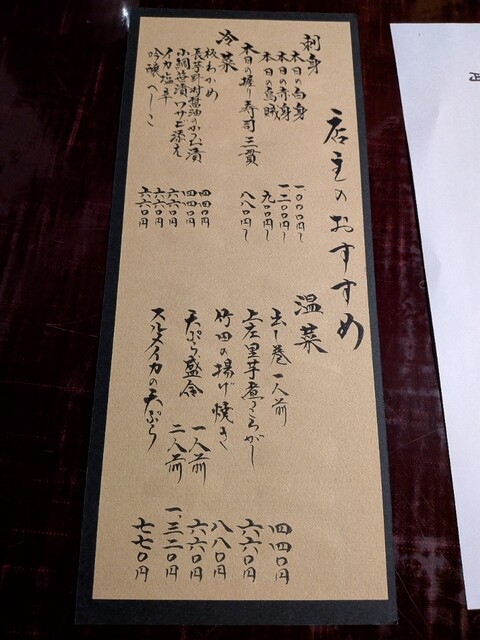 店主のおすすめ
刺身
本日の白身 一〇〇〇円〜
本日の赤身 一二〇〇円〜
本日の烏賊 九〇〇円〜
本日の握り寿司三貫 八八〇円〜
冷菜
板わかめ 四四〇円
長芋野村醤油のかつお漬 四四〇円
小鯛笹漬ワサビ添え 六六〇円
イカ塩辛 六六〇円
吟醸へしこ 六六〇円
温菜
出し巻一人前 四四〇円
上庄里芋煮っころがし 六六〇円
竹田の揚げ焼き 八八〇円
天ぷら盛合 一人前 六六〇円
二人前 一、三二〇円
スルメイカの天ぷら 七七〇円